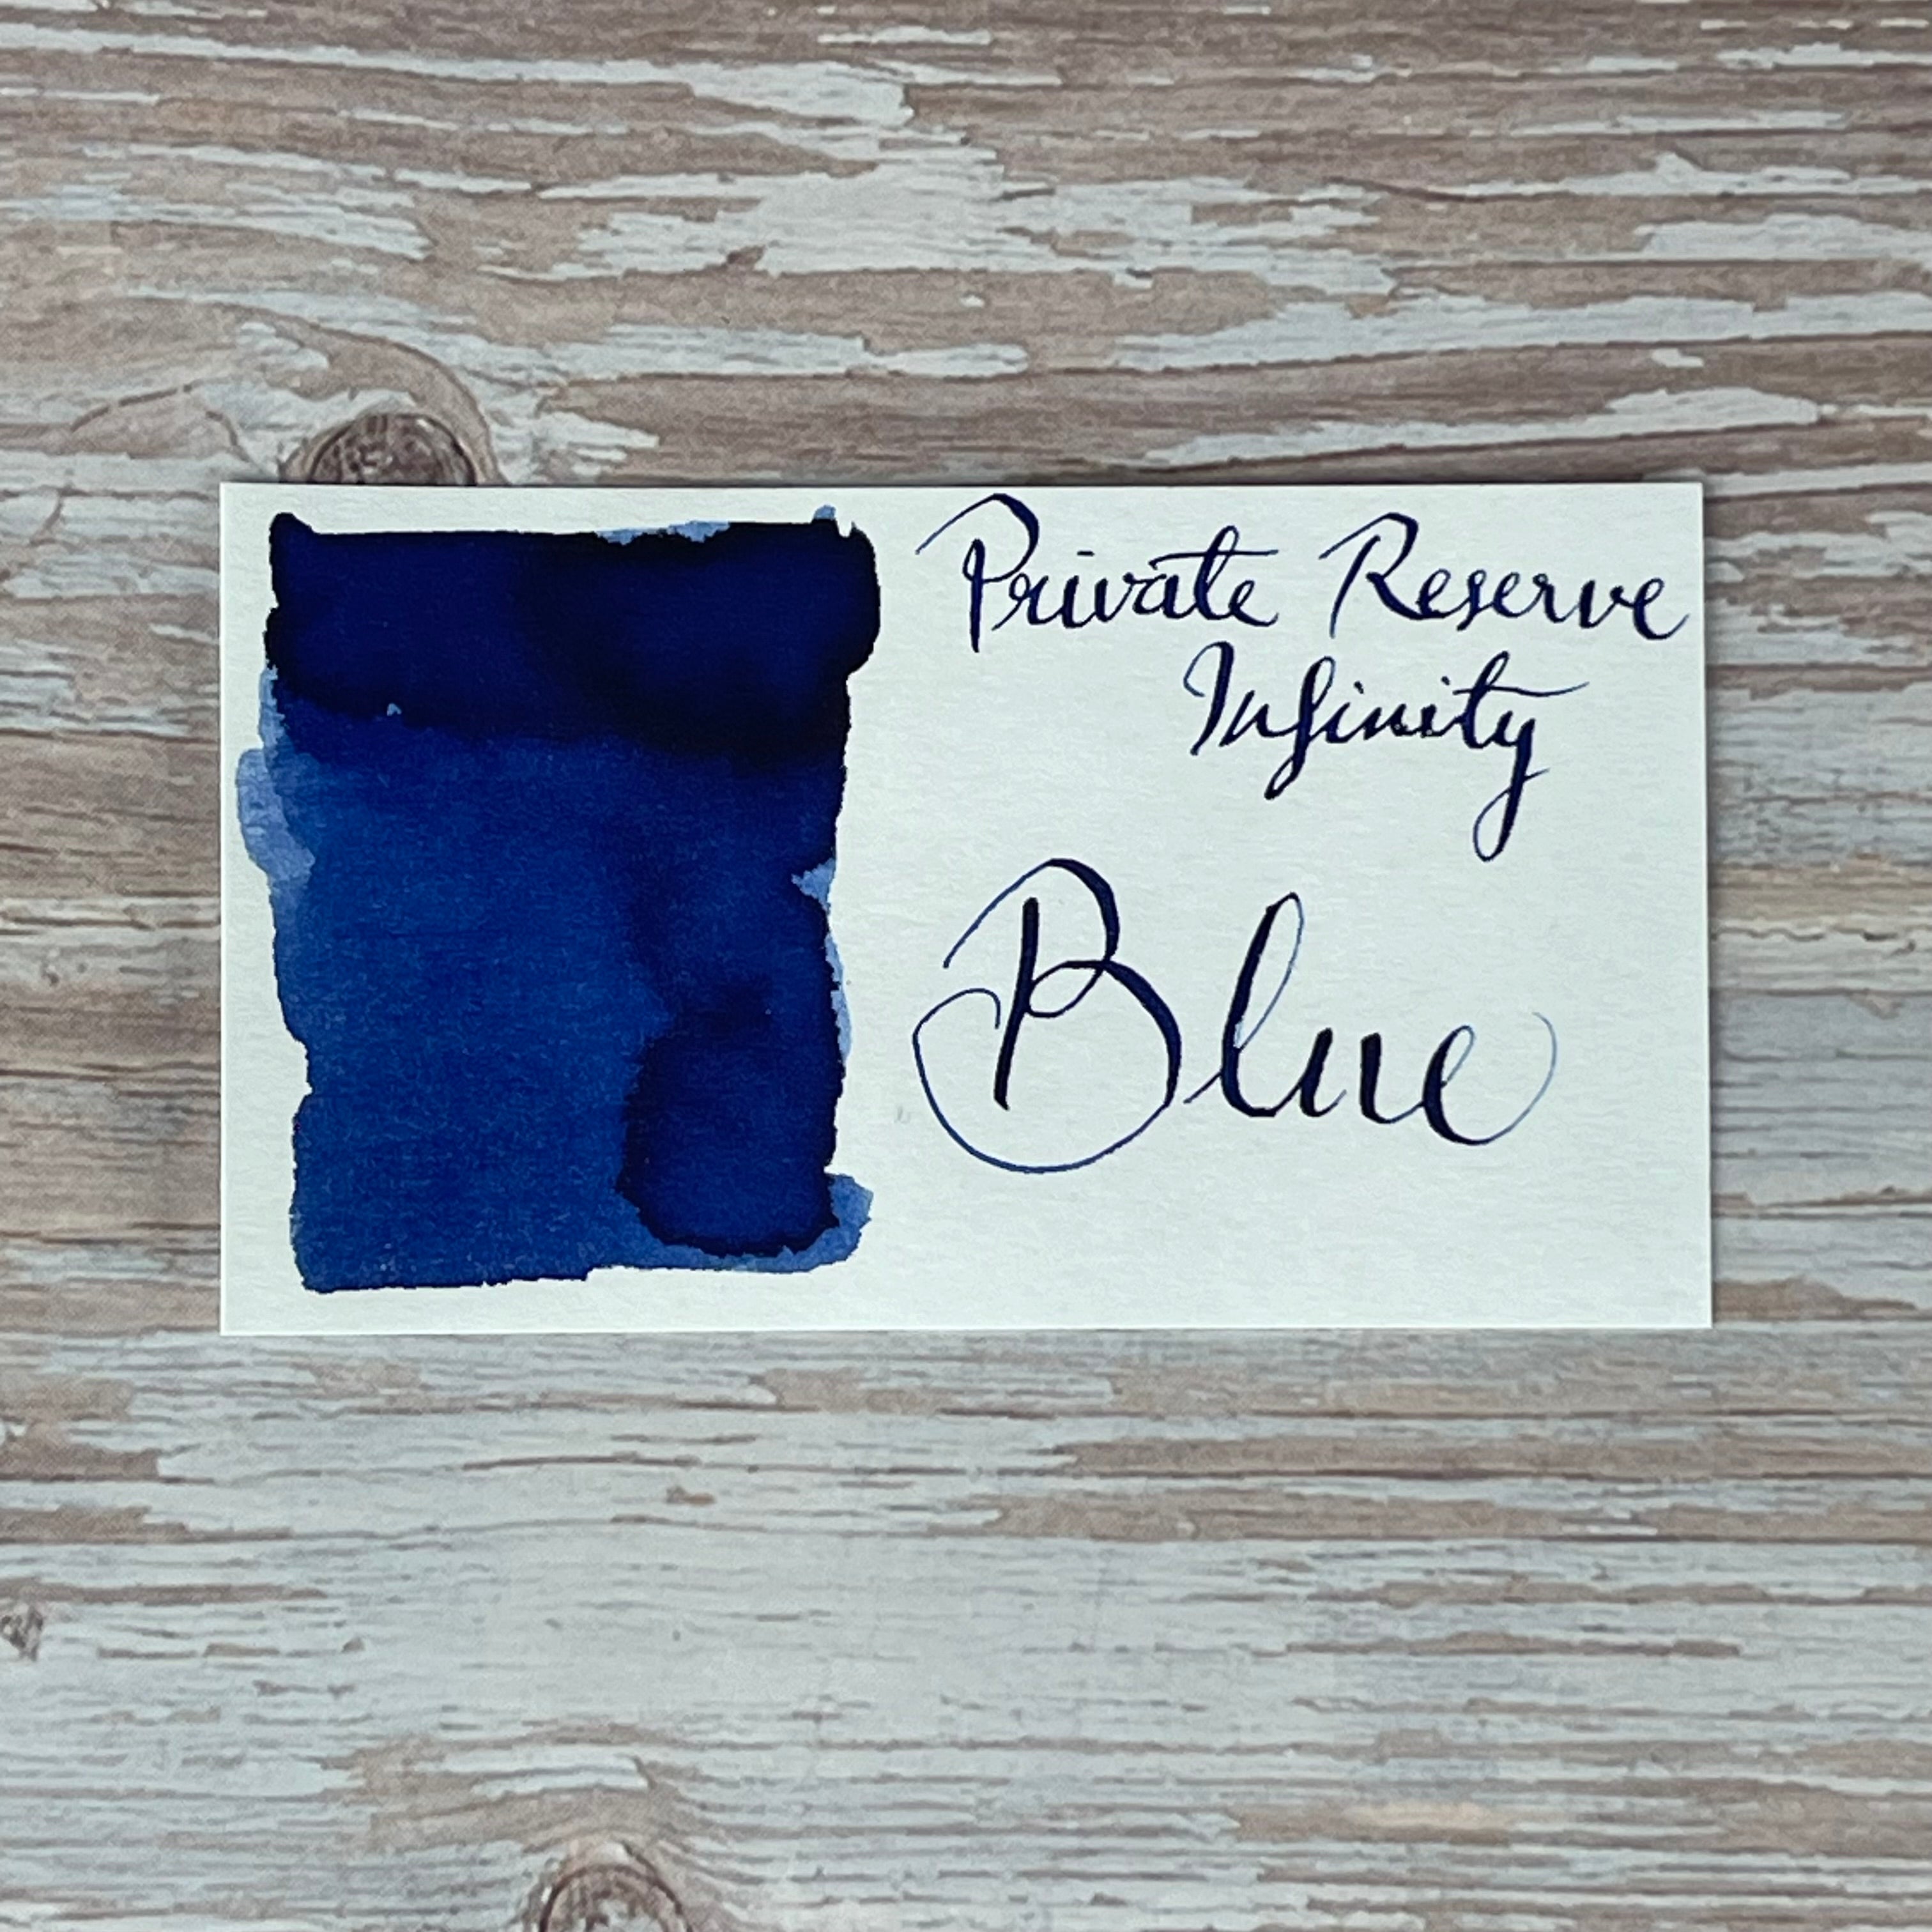 Private Reserve
Infinity
Blue